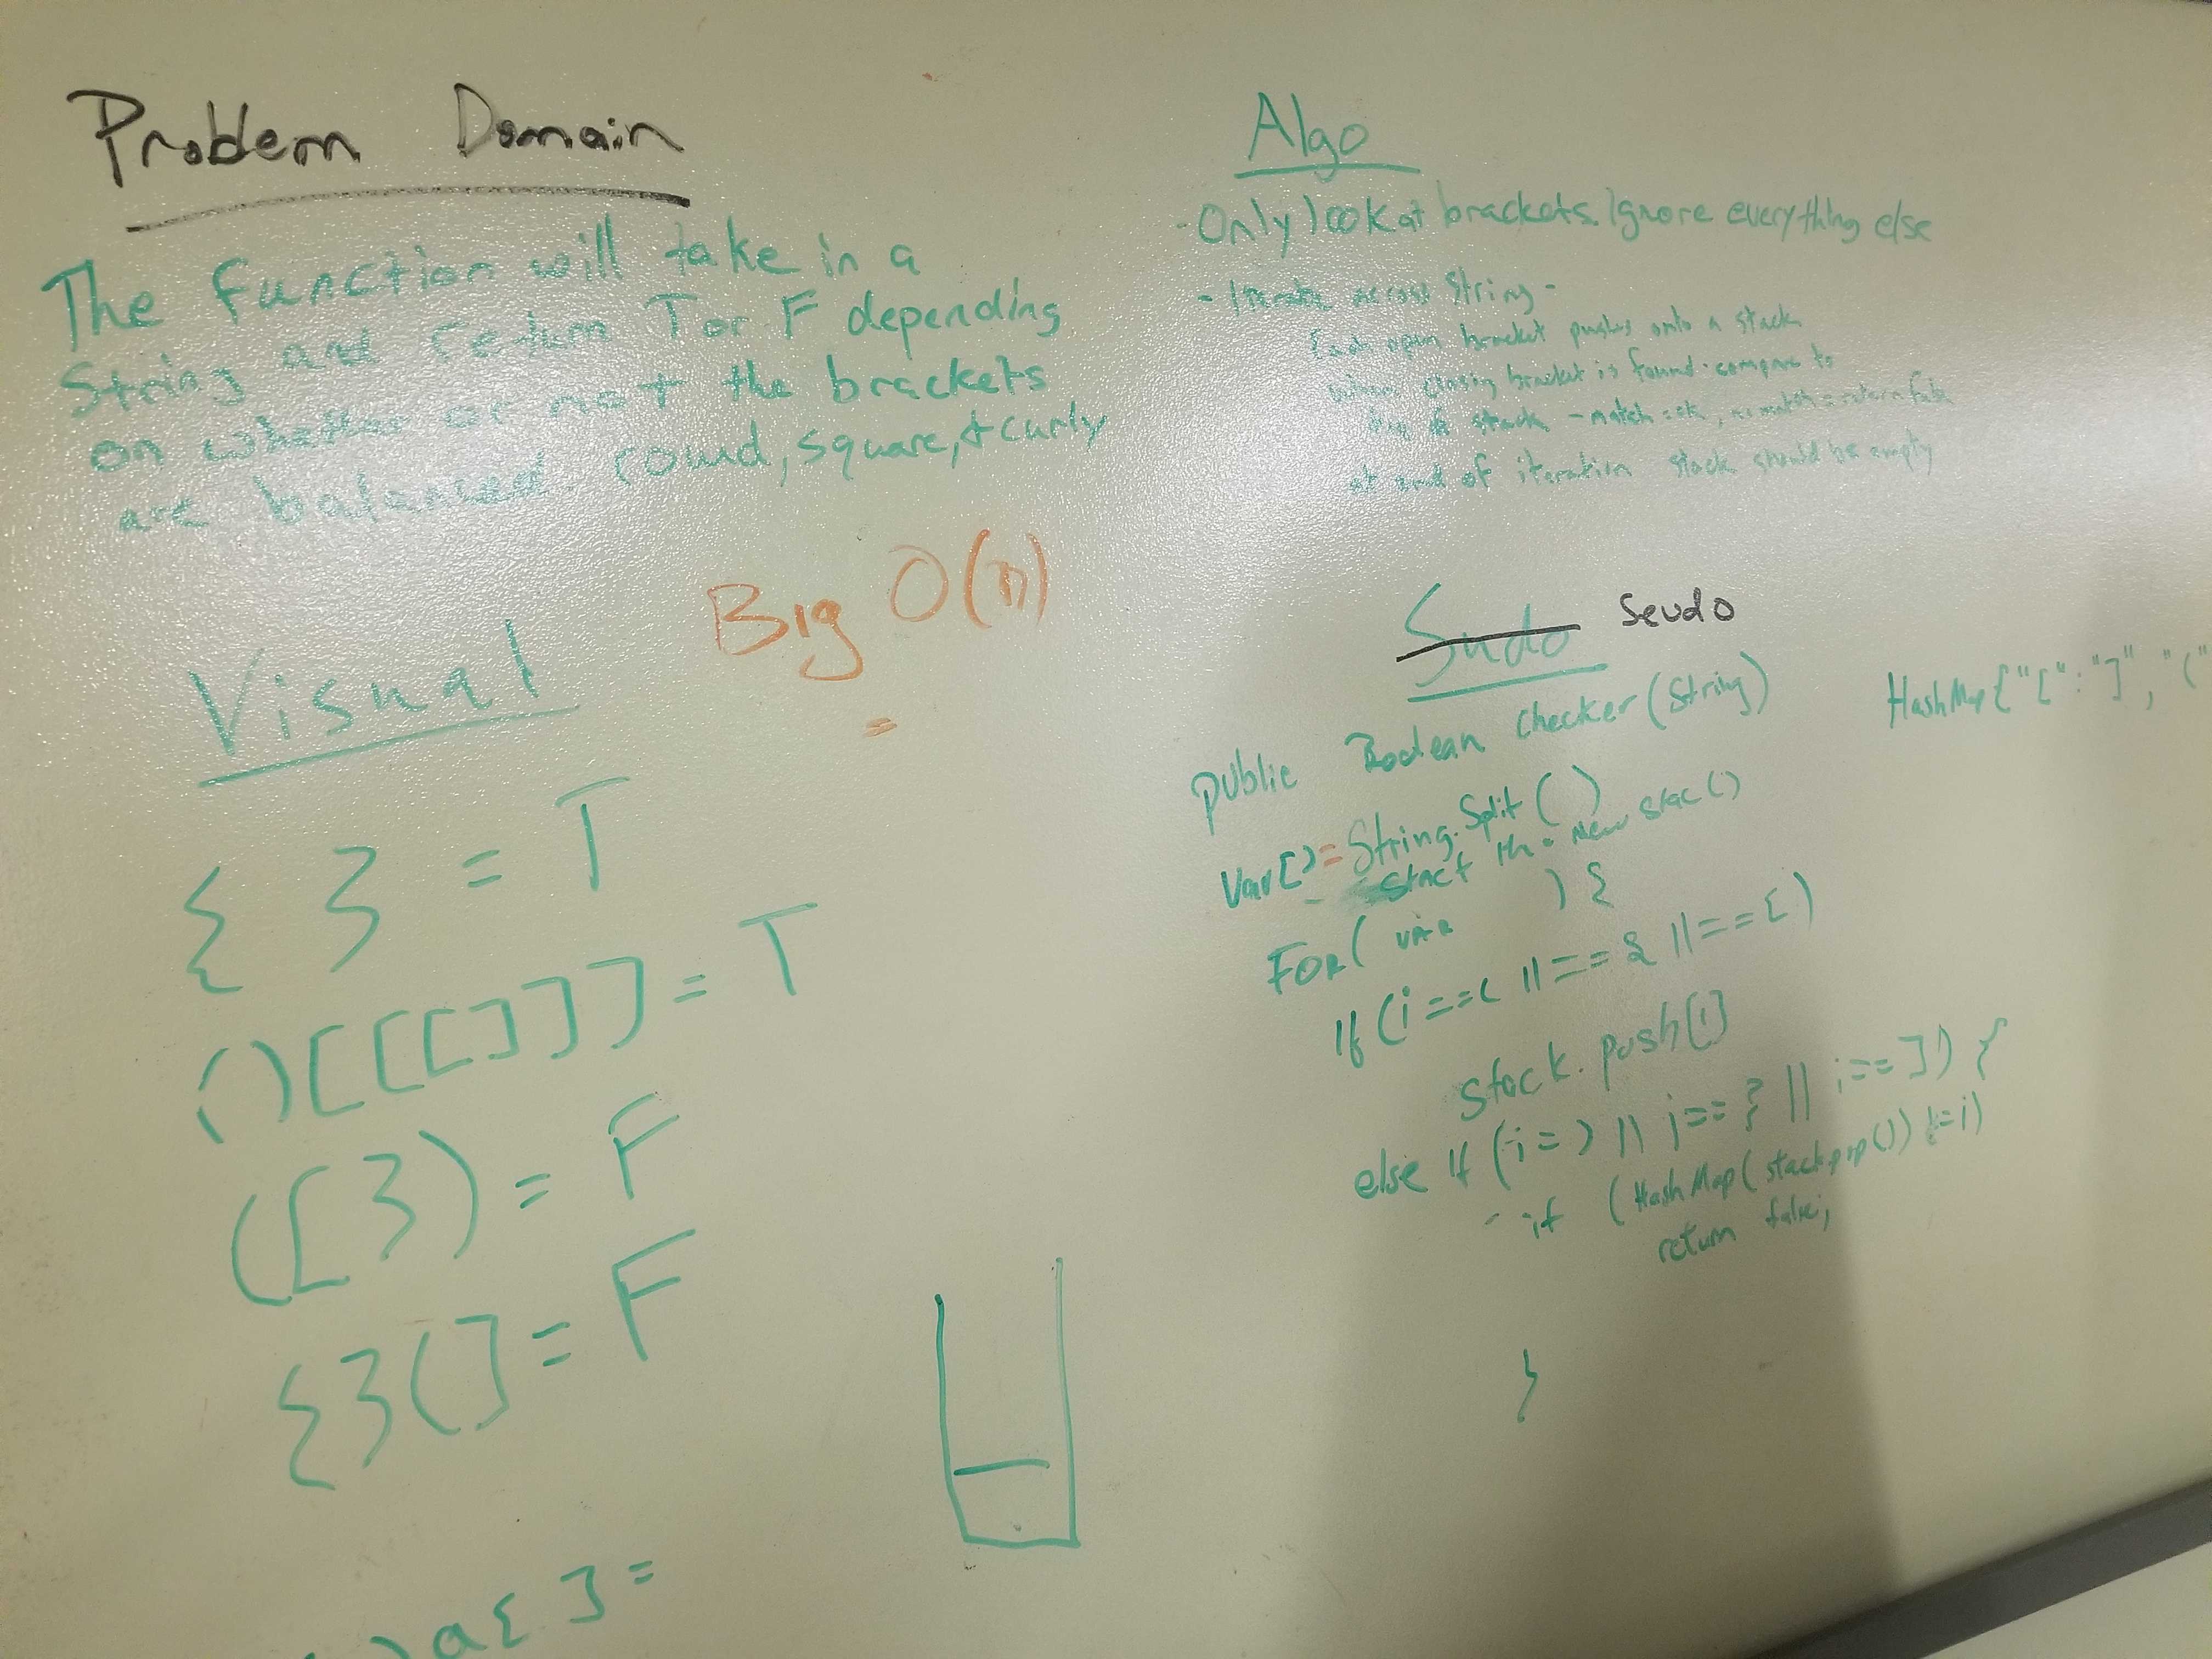 Problem Domain
The function will take in a
String and return T or F depending
on whether or not the brackets
are balanced. round, square, & curly
Big O(n)
=
Visual
{ } = T
()[[[[]]]] = T
([}) = F
{}(] = F
) a { ] =
Algo
- Only look at brackets. Ignore everything else
- Iterate across String -
Each open bracket pushes onto a stack
when closing bracket is found - compare to
top of stack - match = ok, no match = return false
at end of iteration stack should be empty
Sudo Seudo
public Boolean checker (String)
HashMap {"[" : "]", "("
Var[] = String.Split( )
new stac()
For( var ) {
If (i == ( || == { || == [ )
stack. push[i]
else If (i = ) || i == } || i == ]) {
- if (HashMap(stack.pop()) != i)
return false;
}